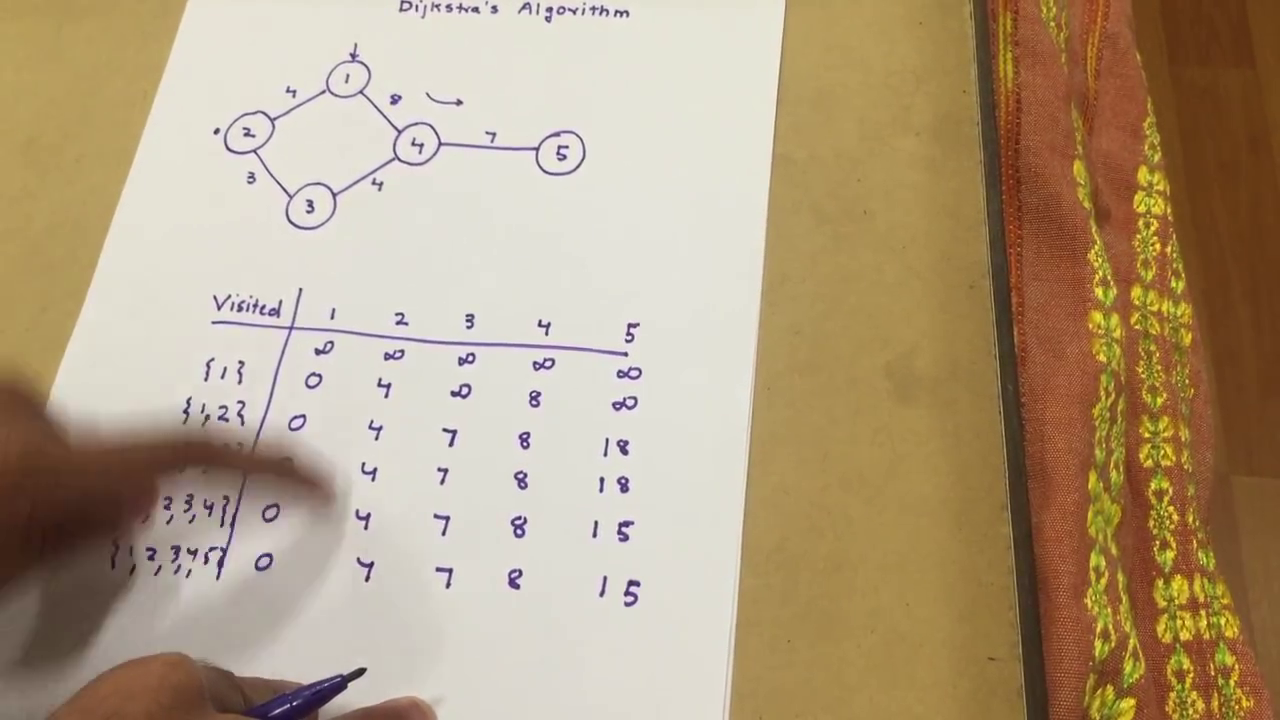 Dijkstra's Algorithm
1
4 8
2 4 7 5
3 4
3
Visited 1 2 3 4 5
∞ ∞ ∞ ∞ ∞
{1} 0 4 ∞ 8 ∞
{1,2} 0 4 7 8 18
4 7 8 18
,2,3,4} 0 4 7 8 15
{1,2,3,4,5} 0 4 7 8 15